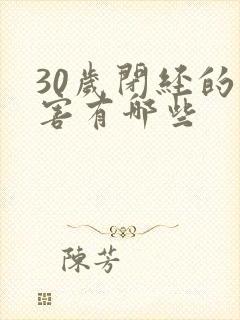 30歲閉経的
害有哪些
陳芳